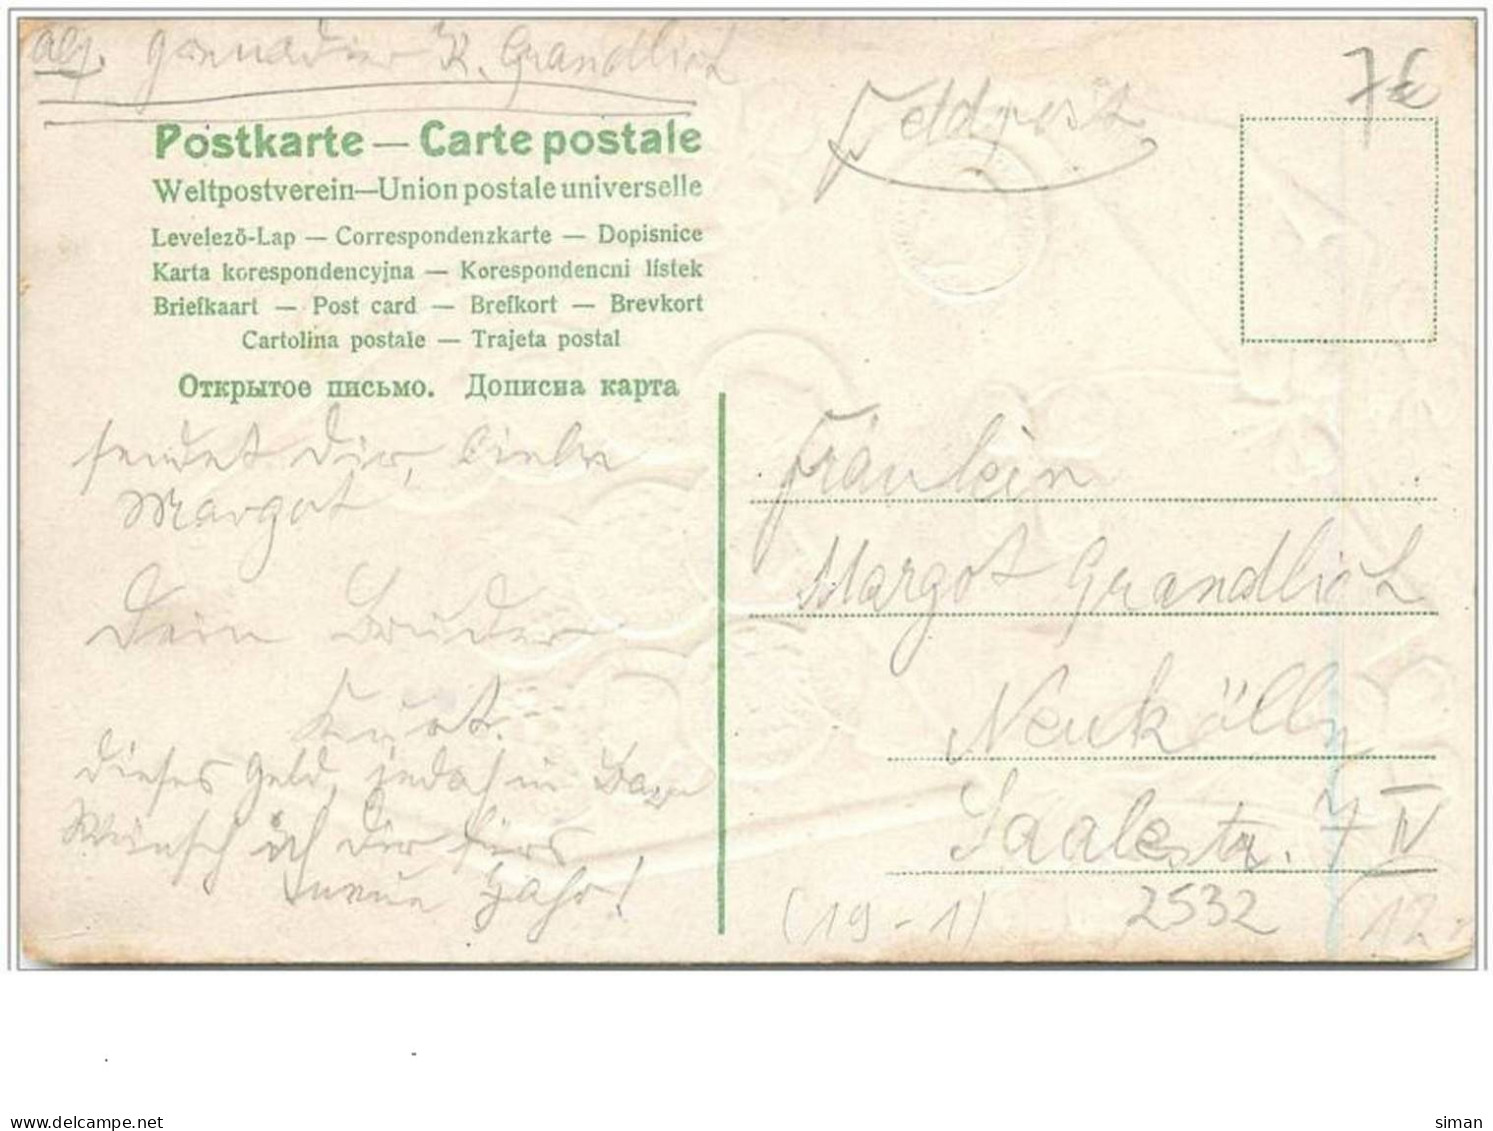 abs. Grenadier K. Grandlich
Feldpost
7€
Postkarte — Carte postale
Weltpostverein—Union postale universelle
Levelezõ-Lap — Correspondenzkarte — Dopisnice
Karta korespondencyjna — Korespondencni lístek
Briefkaart — Post card — Brefkort — Brevkort
Cartolina postale — Trajeta postal
Открытое письмо. Дописна карта
sendet Dir, liebe
Margot
Dein Bruder
Kurt.
dieses Geld, jedoch in
Wünsch ich Dir fürs
neue Jahr!
Fräulein
Margot Grandlich
Neukölln
Saalestr. 7 IV
(19-1) 2532 12
www.delcampe.net
siman